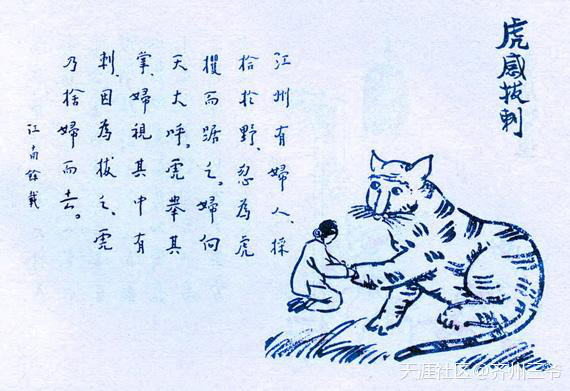 虎感拔刺
江州有婦人、採
拾於野、忽為虎
攫而踞之。婦向
天大呼。虎舉其
掌、婦視其中有
刺、因為拔之、虎
乃捨婦而去。
江南餘載
天涯社区@齐州三爷